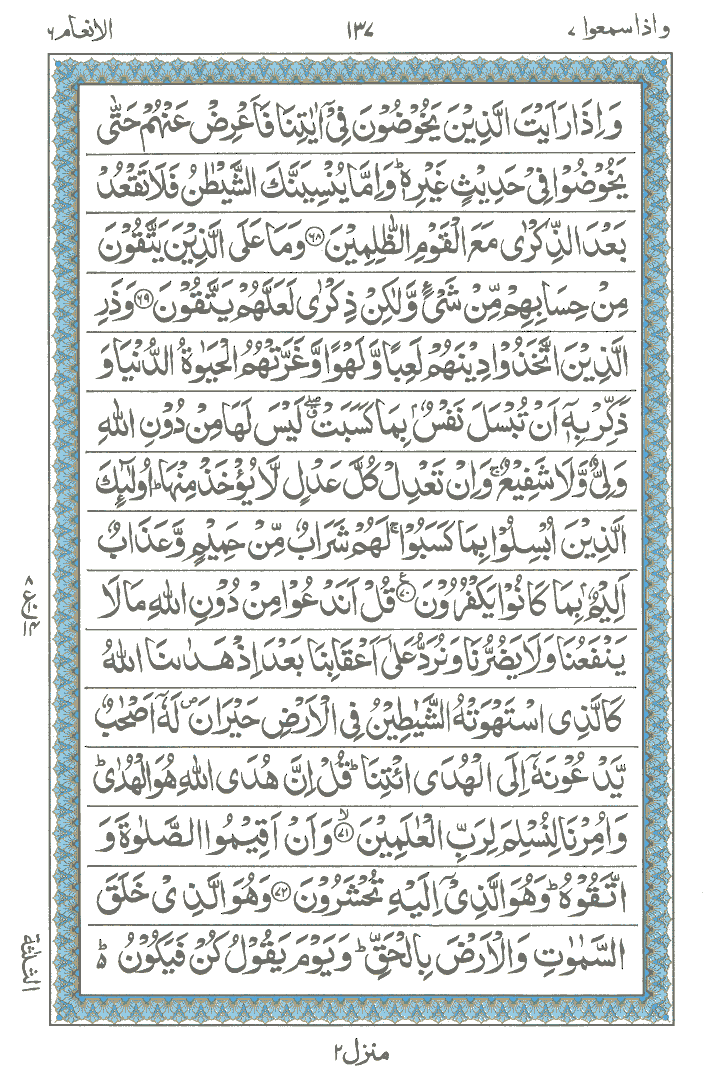 واذاسمعوا ٧ ١٣٧ الانعام ٦
وَاِذَا رَاَيْتَ الَّذِيْنَ يَخُوْضُوْنَ فِيْۤ اٰيٰتِنَا فَاَعْرِضْ عَنْهُمْ حَتّٰى
يَخُوْضُوْا فِيْ حَدِيْثٍ غَيْرِهٖ ؕ وَاِمَّا يُنْسِيَنَّكَ الشَّيْطٰنُ فَلَا تَقْعُدْ
بَعْدَ الذِّكْرٰى مَعَ الْقَوْمِ الظّٰلِمِيْنَ ۝٦٨ وَمَا عَلَى الَّذِيْنَ يَتَّقُوْنَ
مِنْ حِسَابِهِمْ مِّنْ شَيْءٍ وَّلٰكِنْ ذِكْرٰى لَعَلَّهُمْ يَتَّقُوْنَ ۝٦٩ وَذَرِ
الَّذِيْنَ اتَّخَذُوْا دِيْنَهُمْ لَعِبًا وَّلَهْوًا وَّغَرَّتْهُمُ الْحَيٰوةُ الدُّنْيَا وَ
ذَكِّرْ بِهٖۤ اَنْ تُبْسَلَ نَفْسٌۢ بِمَا كَسَبَتْ ۖۗ لَيْسَ لَهَا مِنْ دُوْنِ اللّٰهِ
وَلِيٌّ وَّلَا شَفِيْعٌ ۚ وَاِنْ تَعْدِلْ كُلَّ عَدْلٍ لَّا يُؤْخَذْ مِنْهَا ؕ اُولٰٓئِكَ
الَّذِيْنَ اُبْسِلُوْا بِمَا كَسَبُوْا ۚ لَهُمْ شَرَابٌ مِّنْ حَمِيْمٍ وَّعَذَابٌ
اَلِيْمٌۢ بِمَا كَانُوْا يَكْفُرُوْنَ ۝٧٠ قُلْ اَنَدْعُوْا مِنْ دُوْنِ اللّٰهِ مَا لَا
يَنْفَعُنَا وَلَا يَضُرُّنَا وَنُرَدُّ عَلٰۤى اَعْقَابِنَا بَعْدَ اِذْ هَدٰىنَا اللّٰهُ
كَالَّذِى اسْتَهْوَتْهُ الشَّيٰطِيْنُ فِى الْاَرْضِ حَيْرَانَ ۪ لَهٗۤ اَصْحٰبٌ
يَّدْعُوْنَهٗۤ اِلَى الْهُدَى ائْتِنَا ؕ قُلْ اِنَّ هُدَى اللّٰهِ هُوَ الْهُدٰى ؕ
وَاُمِرْنَا لِنُسْلِمَ لِرَبِّ الْعٰلَمِيْنَ ۙ۝٧١ وَاَنْ اَقِيْمُوا الصَّلٰوةَ وَ
اتَّقُوْهُ ؕ وَهُوَ الَّذِيْۤ اِلَيْهِ تُحْشَرُوْنَ ۝٧٢ وَهُوَ الَّذِيْ خَلَقَ
السَّمٰوٰتِ وَالْاَرْضَ بِالْحَقِّ ؕ وَيَوْمَ يَقُوْلُ كُنْ فَيَكُوْنُ ؕ
منزل ٢
الثلثة